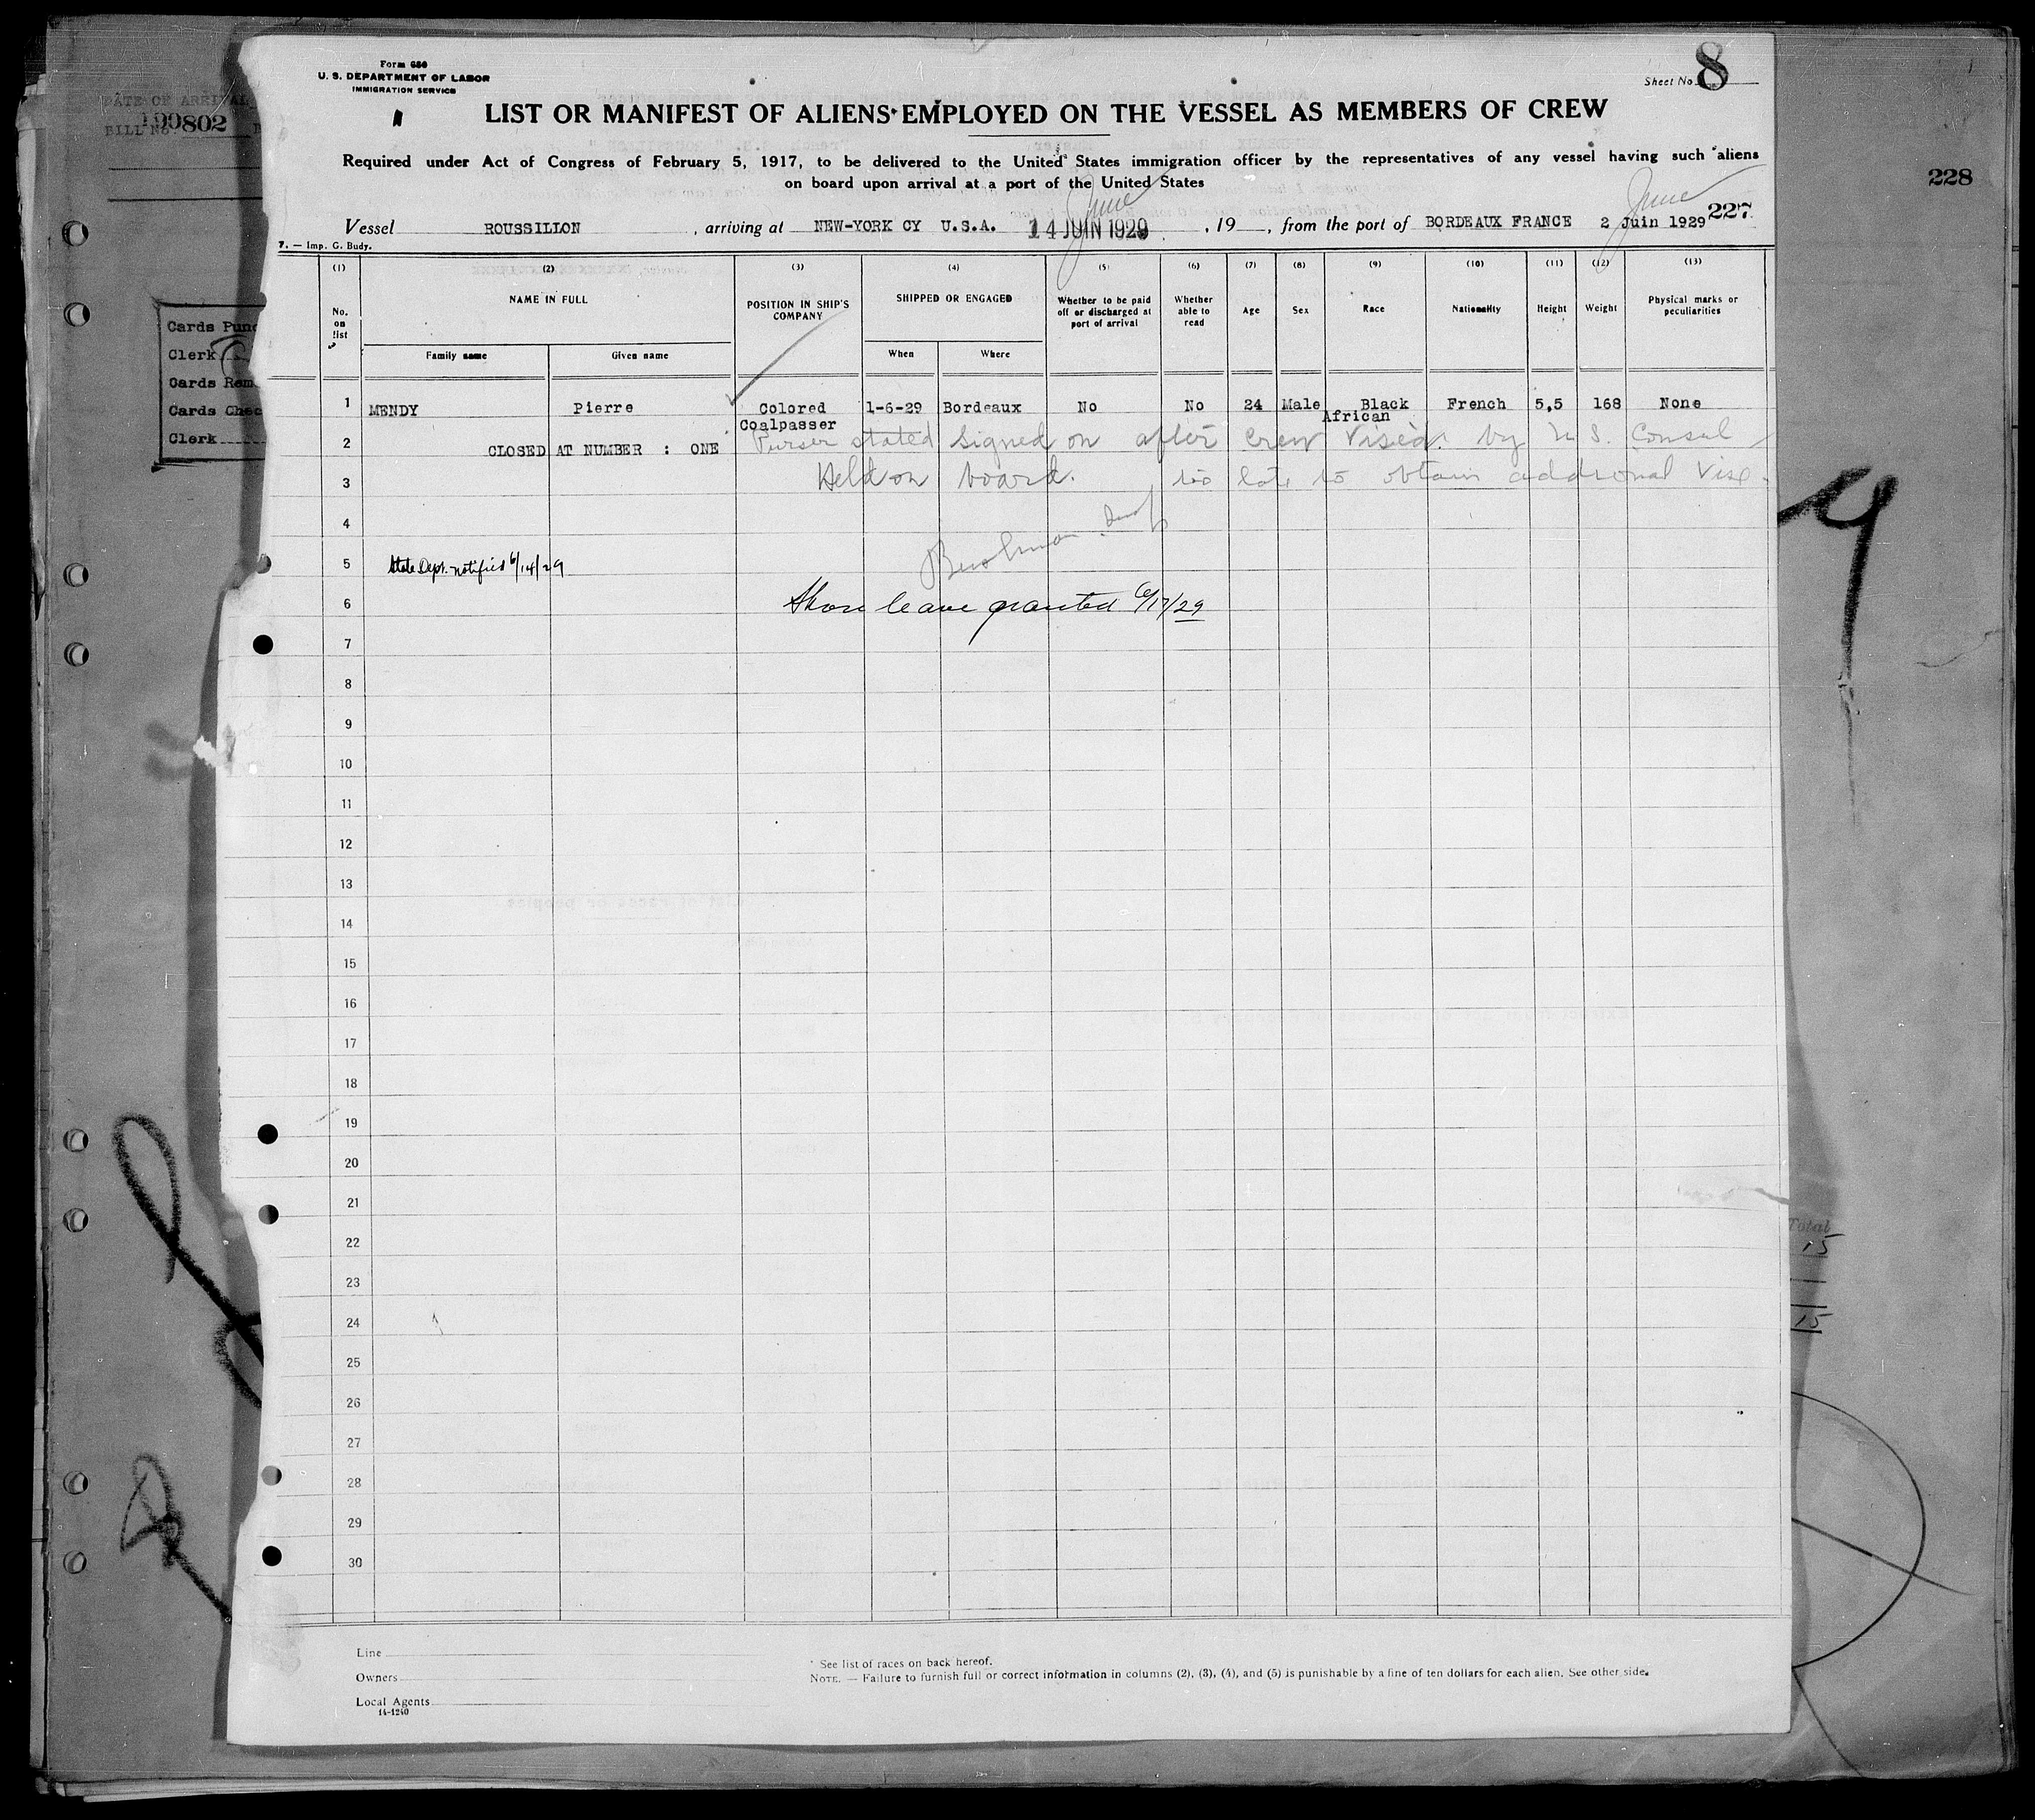 Form 680
U. S. DEPARTMENT OF LABOR
IMMIGRATION SERVICE
Sheet No. 8
LIST OR MANIFEST OF ALIENS EMPLOYED ON THE VESSEL AS MEMBERS OF CREW
Required under Act of Congress of February 5, 1917, to be delivered to the United States immigration officer by the representatives of any vessel having such aliens
on board upon arrival at a port of the United States
228
June June
Vessel ROUSSILLON , arriving at NEW-YORK CY U.S.A. 14 JUIN 1929 , 19 , from the port of BORDEAUX FRANCE 2 Juin 1929 227
7. — Imp. G. Budy.
(1) (2) (3) (4) (5) (6) (7) (8) (9) (10) (11) (12) (13)
No. on list NAME IN FULL POSITION IN SHIP'S COMPANY SHIPPED OR ENGAGED Whether to be paid off or discharged at port of arrival Whether able to read Age Sex Race Nationality Height Weight Physical marks or peculiarities
Family name Given name When Where
1 MENDY Pierre Colored Coalpasser 1-6-29 Bordeaux No No 24 Male Black African French 5,5 168 None
2 CLOSED AT NUMBER : ONE Purser stated signed on after crew visèd by U.S. Consul
3 Held on board. too late to obtain additional Vise.
4
5 State Dept. notified 6/14/29
6 Shore leave granted 6/17/29
7
8
9
10
11
12
13
14
15
16
17
18
19
20
21
22
23
24
25
26
27
28
29
30
Line
Owners
Local Agents
14-1240
* See list of races on back hereof.
NOTE. — Failure to furnish full or correct information in columns (2), (3), (4), and (5) is punishable by a fine of ten dollars for each alien. See other side.
DATE OF ARRIVAL
BILL No. 199802
Cards Punc
Clerk
Cards Rem
Cards Chec
Clerk
Total
15
15